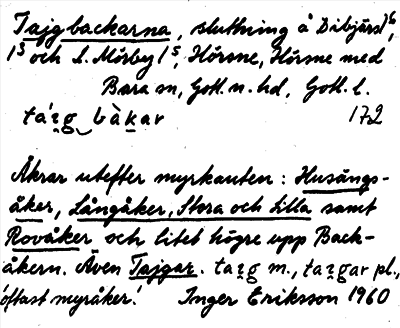 Tajgbackarna, sluttning å Dibjärs 1⁶,
1³ och L. Mörby 1⁵, Hörsne, Hörsne med
Bara sn, Gotl. n. hd, Gotl. l.
ta´i̯g‿bàkar 172
Åkrar utefter myrkanten: Husängs-
åker, Långåker, Stora och Lilla samt
Rovåker och litet högre upp Back-
åkern. Även Tajgar. tai̯g m., tai̯gar pl.,
'oftast myråker'. Inger Eriksson 1960